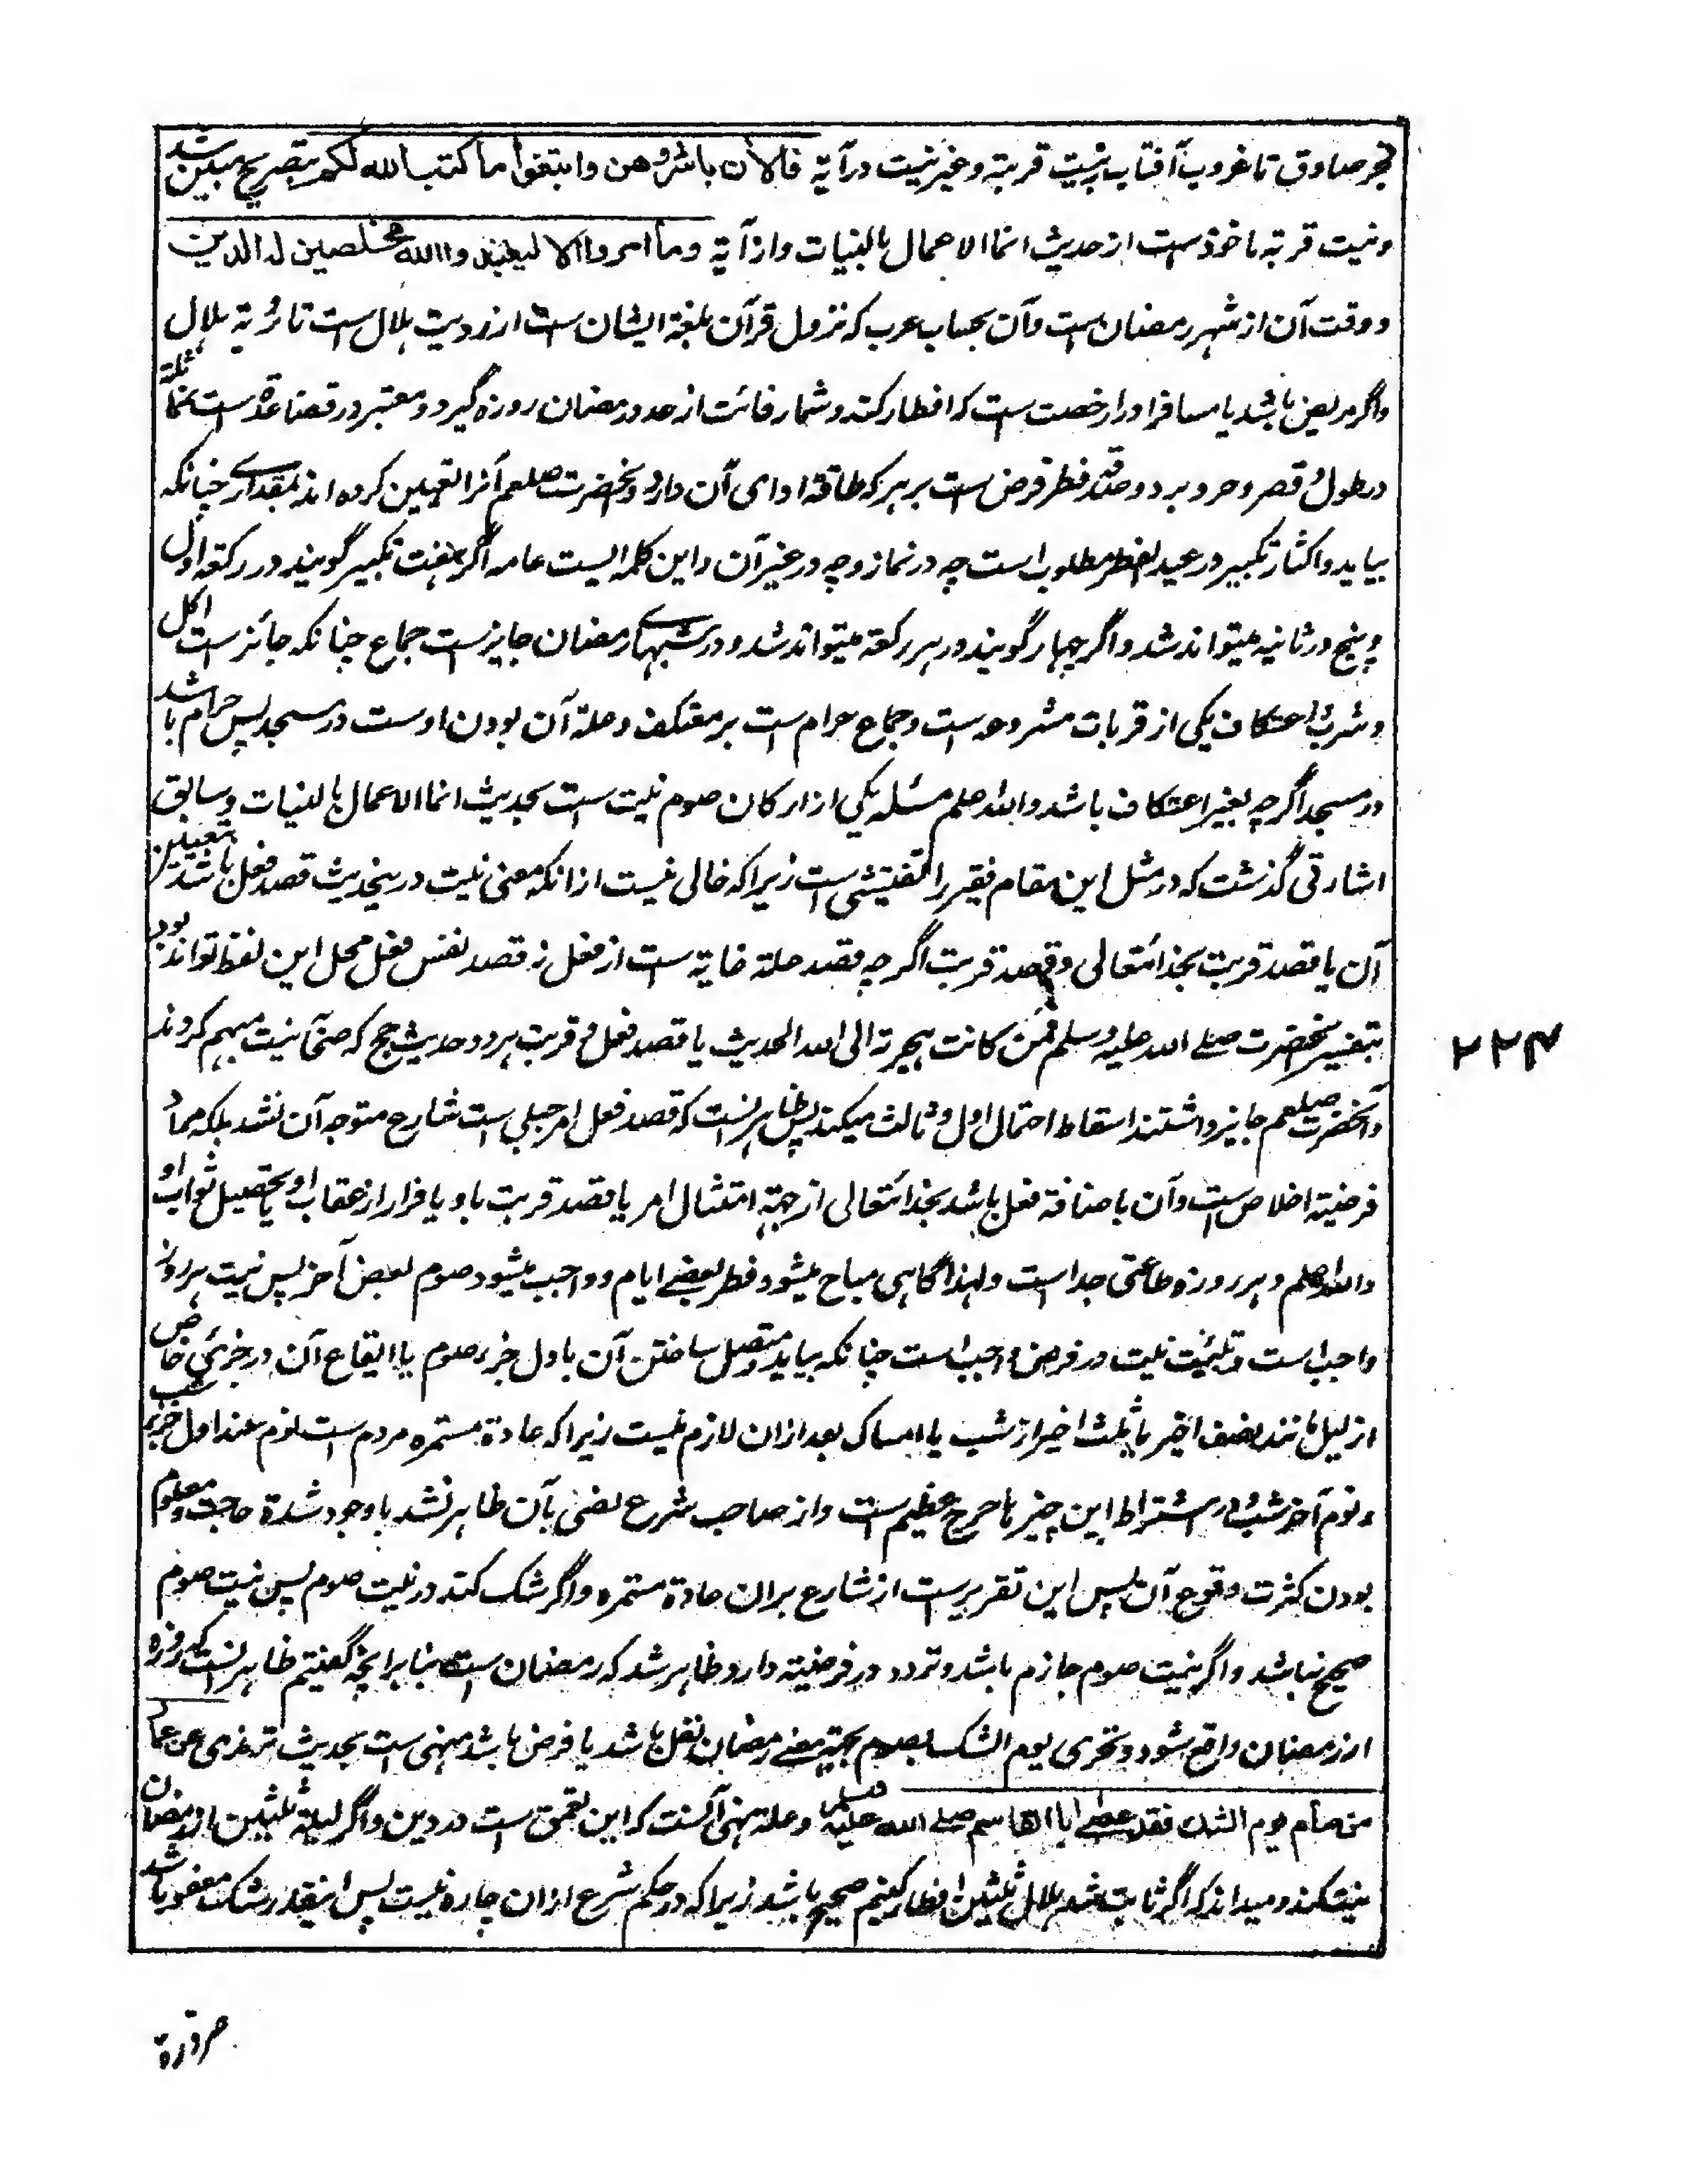 فجر صادق تا غروب آفتاب به نیت قربة و غیر نیت در آیة فالآن باشروهن وابتغوا ما کتب الله لکم بتصریح مبین شد
و نیت قربة ماخوذست از حدیث انما الاعمال بالنیات و از آیة وما امروا الا لیعبدوا الله مخلصین له الدین
و وقت آن از شهر رمضان ست و آن بحساب عرب که نزول قرآن بلغة ایشان ست از رویت هلال ست تا رؤیة هلال
و اگر مریض باشد یا مسافر او را رخصت ست که افطار کند و شمار فائت از عدد رمضان روزه گیرد و معتبر در قضا عدة ست نه
در طول و قصر و حر و برد و صدقه فطر فرض ست بر هر که طاقة ادای آن دارد و آنحضرت صلعم آنرا تعیین کرده اند بمقداری چنانکه
بیاید و اکثار تکبیر در عید الفطر مطلوب است چه در نماز و چه در غیر آن و این کلمه ایست عامه اگر هفت تکبیر گویند در رکعة اول
و پنج در ثانیه میتواند شد و اگر چهار گویند در هر رکعة میتواند شد و در شبهای رمضان جایزست جماع چنانکه جائزست اکل
و شرب و اعتکاف یکی از قربات مشروعه است و جماع حرام ست بر معتکف و علة آن بودن اوست در مسجد پس حرام باشد
در مسجد اگرچه بغیر اعتکاف باشد والله اعلم مسئله یکی از ارکان صوم نیت ست بحدیث انما الاعمال بالنیات و سابق
اشارتی گذشت که در مثل این مقام فقیر را تفتیشی ست زیرا که خالی نیست از انکه معنی نیت درینحدیث قصد فعل باشد بتعیین
آن یا قصد قربت بخدا تعالی و قصد قربت اگرچه قصد علة غایة ست از فعل نه قصد نفس فعل محمل این لفظ تواند بود
بتفسیر آنحضرت صلے الله علیه وسلم فمن کانت هجرته الی الله الحدیث یا قصد فعل و قربت هردو و حدیث حج که صحابه نیت مبهم کردند
و آنحضرت صلعم جایز داشتند اسقاط احتمال اول و ثالث میکند پس ظاهر آنست که قصد فعل امر جبلی ست شارع متوجه آن نشد بلکه مراد
فرضیة اخلاص ست و آن باضافة فعل باشد بخدا تعالی از جهة امتثال امر یا قصد قربت باو یا فرار از عقاب او یا تحصیل ثواب او
والله اعلم و هر روزه طاعتی جداست و لهذا گاهی مباح میشود فطر بعضے ایام و واجب میشود صوم بعض آخر پس نیت هر روز
واجب است و تبییت نیت در فرض واجب است چنانکه بیاید و متصل ساختن آن باول جزء صوم یا ایقاع آن در جزئی خاص
از لیل مانند نصف اخیر یا ثلث اخیر از شب یا امساک بعد ازان لازم نیست زیرا که عادة مستمره مردم ست نوم عند اول جزء شب
و نوم آخر شب و در اشتراط این چیزها حرج عظیم ست و از صاحب شرع نصی بآن ظاهر نشد باوجود شدة حاجت و معلوم
بودن کثرت وقوع آن پس این تقریرست از شارع بران عادة مستمره و اگر شک کند در نیت صوم پس نیت صوم
صحیح نباشد و اگر به نیت صوم جازم باشد و تردد در فرضیة دارد و ظاهر شد که رمضان ست بنابر آنچه گفتیم ظاهر آنست که روزه
از رمضان واقع شود و تحری یوم الشک بصوم بجهة معنے رمضان نفل باشد یا فرض باشد منهی ست بحدیث ترمذی عن عمار
من صام یوم الشک فقد عصے ابا القاسم صلے الله علیه وسلم و علة نهی آنست که این تعمق ست در دین و اگر لیلة ثلثین از رمضان
نیت کند و میداند که اگر ثابت شد هلال ثلثین افطار کنیم صحیح باشد زیرا که در حکم شرع ازان چاره نیست پس اینقدر شک معفو باشد
۲۲۴
ضرورة